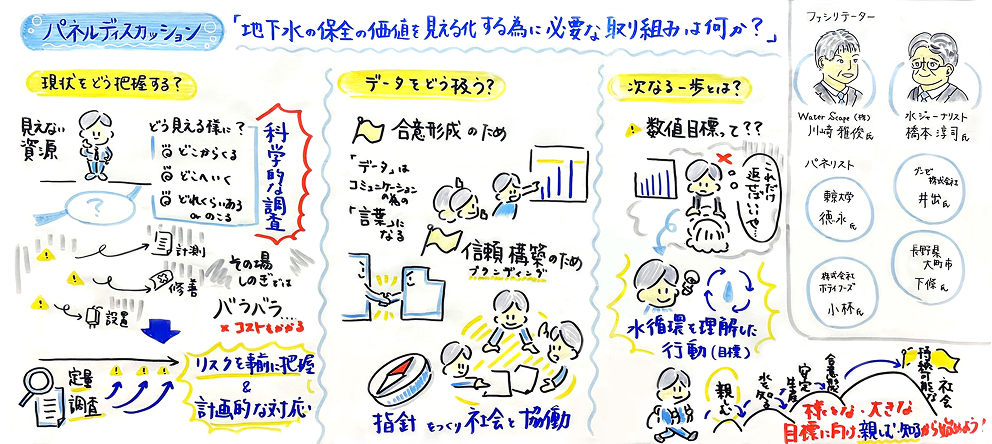 パネルディスカッション
「地下水の保全の価値を見える化する為に必要な取り組みは何か？」
現状をどう把握する？
見えない
資源
どう見える様に？
どこからくる
どこへいく
どれくらいある
or のこる
科学的な調査
?
計測
修善
設置
その場
しのぎでは
バラバラ…
× コストもかかる
定量
調査
リスクを事前に把握
&
計画的な対応
データをどう扱う？
合意形成のため
「データ」は
コミュニケーション
の為の
「言葉」に
なる
信頼構築のため
ブランディング
指針をつくり社会と協働
次なる一歩とは？
数値目標って??
これだけ
返せばいいや…
水循環を理解した
行動(目標)
親しむ
水を知る
安定
生産
合意形成
持続可能な
社会
様々な・大きな
目標に向け親しむ・知るから始めよう！
ファシリテーター
Water Scape (株)
川崎雅俊氏
水ジャーナリスト
橋本淳司氏
パネリスト
東京大学
徳永氏
サントリー
株式会社
井出氏
株式会社
ポライフーズ
小林氏
長野県
大町市
下條氏